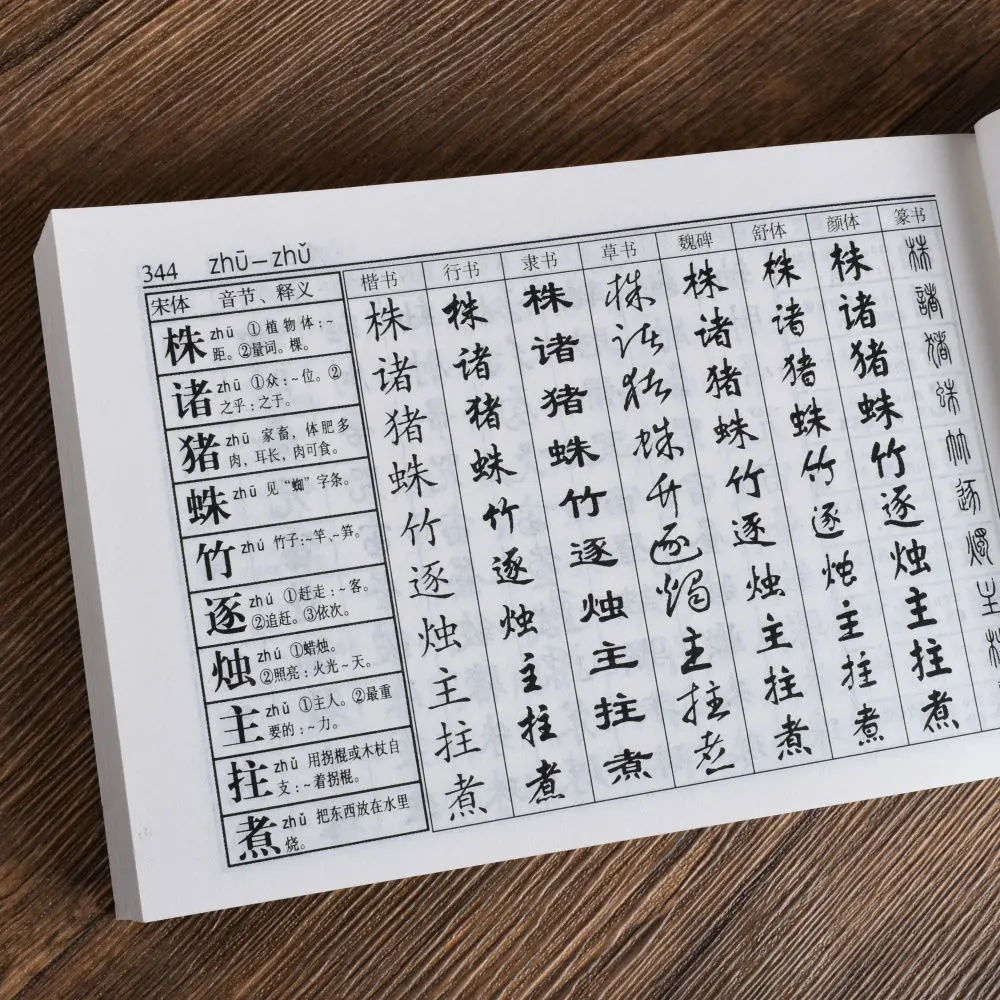 344 zhū—zhǔ
宋体 音节、释义 楷书 行书 隶书 草书 魏碑 舒体 颜体 篆书
株 zhū ①植物体:~
距。②量词。棵。
株 株 株 株 株 株 株 株
诸 zhū ①众:~位。②
之乎;之于。
诸 诸 诸 诸 诸 诸 诸 諸
猪 zhū 家畜,体肥多
肉,耳长,肉可食。
猪 猪 猪 猪 猪 猪 猪 猪
蛛 zhū 见“蜘”字条。
蛛 蛛 蛛 蛛 蛛 蛛 蛛 蛛
竹 zhú 竹子:~竿、~笋。
竹 竹 竹 竹 竹 竹 竹 竹
逐 zhú ①赶走:~客。
②追赶。③依次。
逐 逐 逐 逐 逐 逐 逐 逐
烛 zhú ①蜡烛。
②照亮:火光~天。
烛 烛 烛 燭 烛 烛 烛 燭
主 zhǔ ①主人。②最重
要的:~力。
主 主 主 主 主 主 主 主
拄 zhǔ 用拐棍或木杖自
支:~着拐棍。
拄 拄 拄 拄 拄 拄 拄
煮 zhǔ 把东西放在水里
烧。
煮 煮 煮 煮 煮 煮 煮